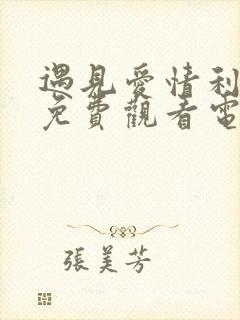 遇見愛情利
免費觀看電
張美芳